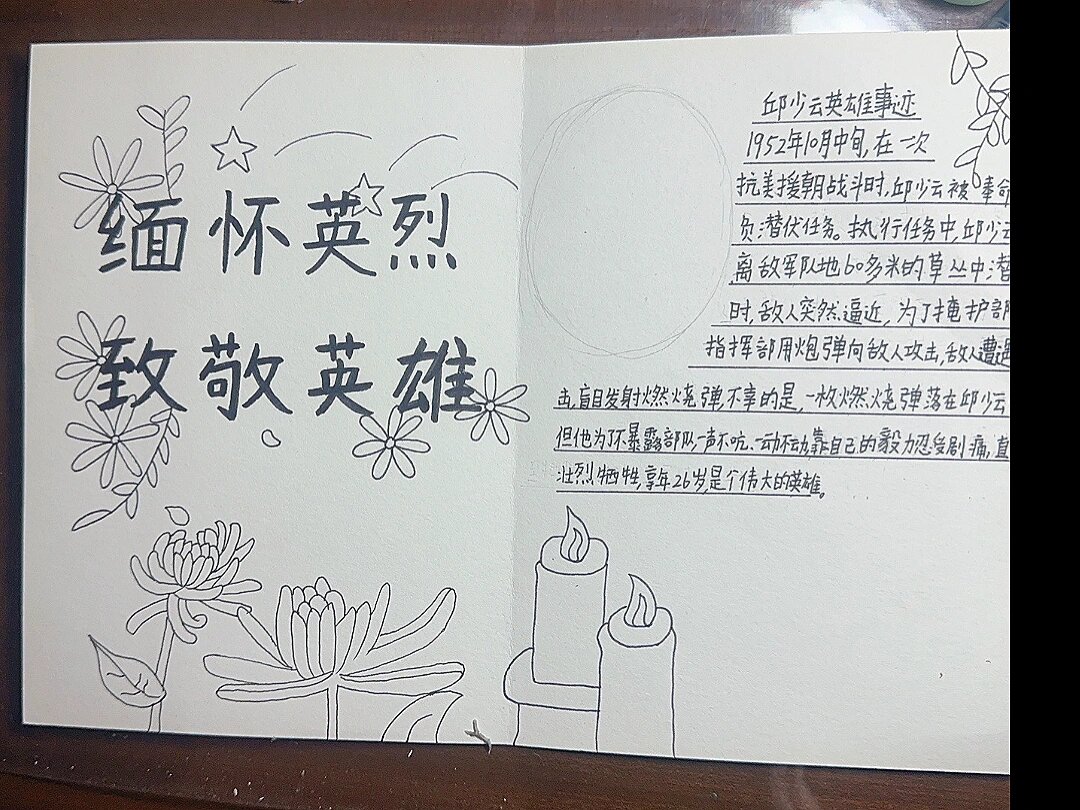 缅怀英烈
致敬英雄
邱少云英雄事迹
1952年10月中旬,在一次
抗美援朝战斗时,邱少云被奉命
负潜伏任务。执行任务中,邱少云
离敌军队地60多米的草丛中潜
时,敌人突然逼近,为了掩护部
指挥部用炮弹向敌人攻击,敌人遭遇
击,盲目发射燃烧弹,不幸的是,一枚燃烧弹落在邱少云
但他为了不暴露部队一声不吭、一动不动,靠自己的毅力忍受剧痛,直
壮烈牺牲,享年26岁,是个伟大的英雄。